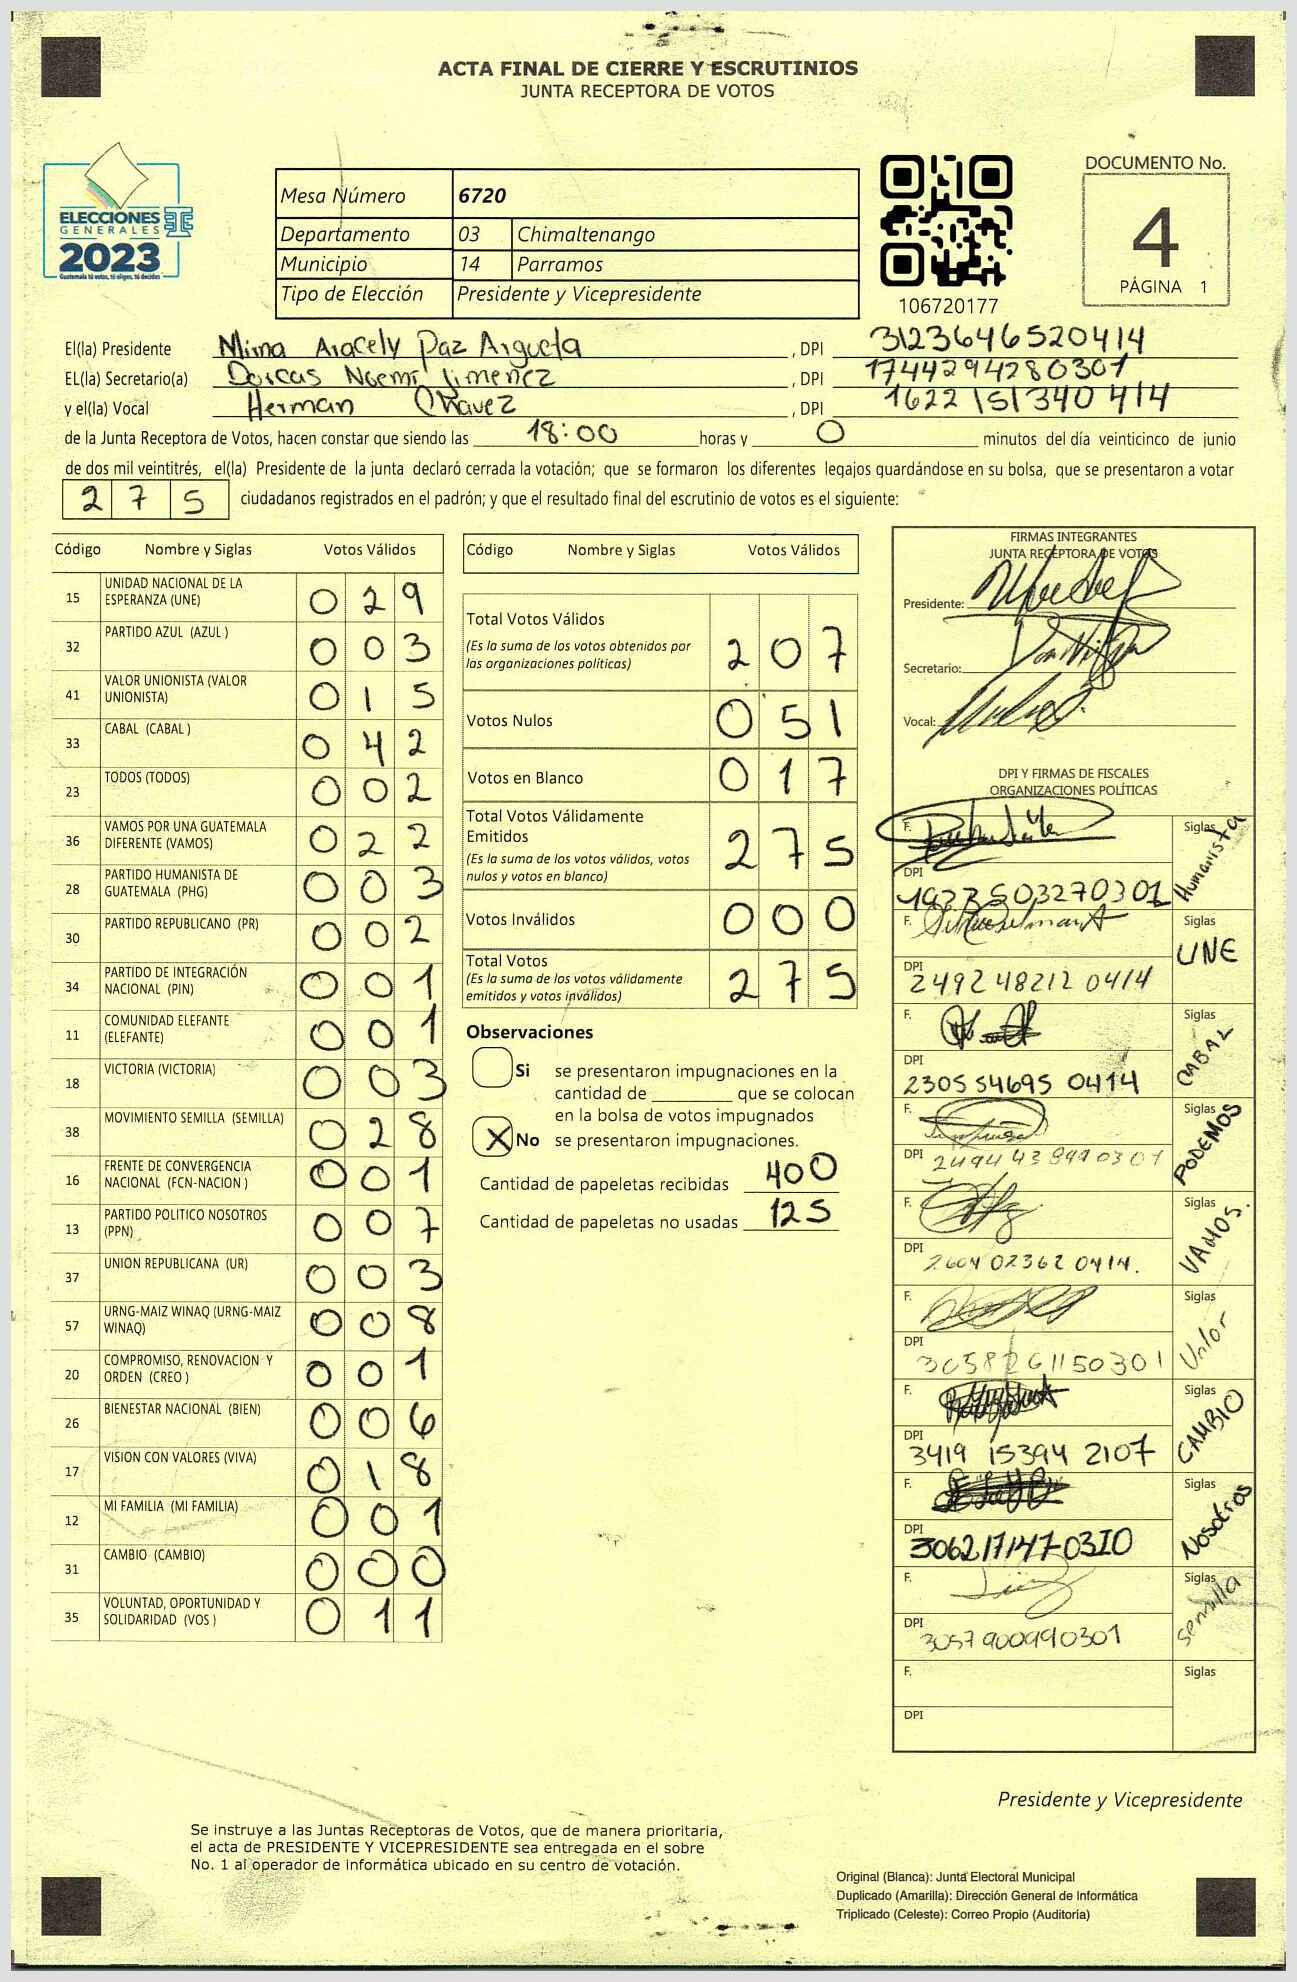 ACTA FINAL DE CIERRE Y ESCRUTINIOS
JUNTA RECEPTORA DE VOTOS
ELECCIONES
GENERALES
2023
Guatemala tú votas, tú eliges, tú decides
Mesa Número 6720
Departamento 03 Chimaltenango
Municipio 14 Parramos
Tipo de Elección Presidente y Vicepresidente
106720177
DOCUMENTO No.
4
PÁGINA 1
El(la) Presidente Mirna Aracely Paz Argueta , DPI 3123646520414
EL(la) Secretario(a) Dorcas Noemi Jimenez , DPI 1744294280301
y el(la) Vocal Herman Chavez , DPI 1622151340414
de la Junta Receptora de Votos, hacen constar que siendo las 18:00 horas y 0 minutos del día veinticinco de junio
de dos mil veintitrés, el(la) Presidente de la junta declaró cerrada la votación; que se formaron los diferentes legajos guardándose en su bolsa, que se presentaron a votar
275 ciudadanos registrados en el padrón; y que el resultado final del escrutinio de votos es el siguiente:
Código Nombre y Siglas Votos Válidos
15 UNIDAD NACIONAL DE LA ESPERANZA (UNE) 029
32 PARTIDO AZUL (AZUL ) 003
41 VALOR UNIONISTA (VALOR UNIONISTA) 015
33 CABAL (CABAL ) 042
23 TODOS (TODOS) 002
36 VAMOS POR UNA GUATEMALA DIFERENTE (VAMOS) 022
28 PARTIDO HUMANISTA DE GUATEMALA (PHG) 003
30 PARTIDO REPUBLICANO (PR) 002
34 PARTIDO DE INTEGRACIÓN NACIONAL (PIN) 001
11 COMUNIDAD ELEFANTE (ELEFANTE) 001
18 VICTORIA (VICTORIA) 003
38 MOVIMIENTO SEMILLA (SEMILLA) 028
16 FRENTE DE CONVERGENCIA NACIONAL (FCN-NACION ) 001
13 PARTIDO POLITICO NOSOTROS (PPN) 007
37 UNION REPUBLICANA (UR) 003
57 URNG-MAIZ WINAQ (URNG-MAIZ WINAQ) 008
20 COMPROMISO, RENOVACION Y ORDEN (CREO ) 001
26 BIENESTAR NACIONAL (BIEN) 006
17 VISION CON VALORES (VIVA) 018
12 MI FAMILIA (MI FAMILIA) 001
31 CAMBIO (CAMBIO) 000
35 VOLUNTAD, OPORTUNIDAD Y SOLIDARIDAD (VOS ) 011
Código Nombre y Siglas Votos Válidos
Total Votos Válidos 207
(Es la suma de los votos obtenidos por
las organizaciones políticas)
Votos Nulos 051
Votos en Blanco 017
Total Votos Válidamente
Emitidos 275
(Es la suma de los votos válidos, votos
nulos y votos en blanco)
Votos Inválidos 000
Total Votos 275
(Es la suma de los votos válidamente
emitidos y votos inválidos)
Observaciones
Si se presentaron impugnaciones en la
cantidad de ________ que se colocan
en la bolsa de votos impugnados
X No se presentaron impugnaciones.
Cantidad de papeletas recibidas 400
Cantidad de papeletas no usadas 125
FIRMAS INTEGRANTES
JUNTA RECEPTORA DE VOTOS
Presidente:
Secretario:
Vocal:
DPI Y FIRMAS DE FISCALES
ORGANIZACIONES POLÍTICAS
F. Siglas Humanista
DPI
F. Siglas UNE
DPI 2492 48212 0414
F. Siglas CABAL
DPI 2305 54695 0414
F. Siglas PODEMOS
DPI
F. Siglas VAMOS.
DPI 2604 02362 0414.
F. Siglas Valor
DPI 3058261150301
F. Siglas CAMBIO
DPI 3419 15394 2107
F. Siglas Nosotros
DPI
F. Siglas Semilla
DPI 3057900990301
F. Siglas
DPI
Presidente y Vicepresidente
Se instruye a las Juntas Receptoras de Votos, que de manera prioritaria,
el acta de PRESIDENTE Y VICEPRESIDENTE sea entregada en el sobre
No. 1 al operador de informática ubicado en su centro de votación.
Original (Blanca): Junta Electoral Municipal
Duplicado (Amarilla): Dirección General de Informática
Triplicado (Celeste): Correo Propio (Auditoría)